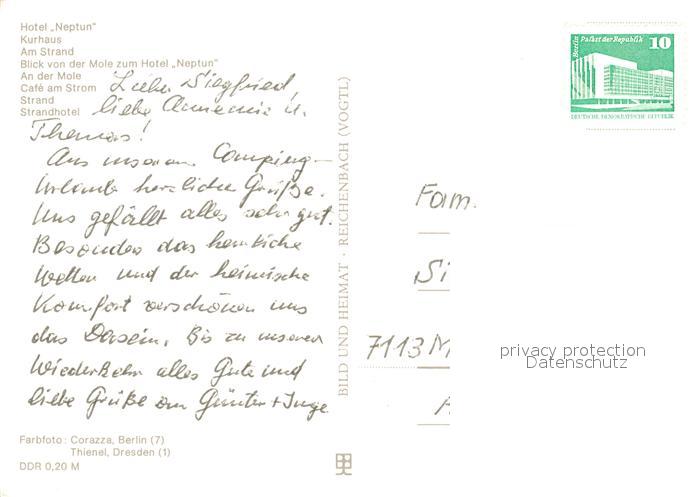 Hotel „Neptun"
Kurhaus
Am Strand
Blick von der Mole zum Hotel „Neptun"
An der Mole
Café am Strom
Strand
Strandhotel
Liebe Siegfried,
liebe Annemie u.
Thomas!
Aus unserem Camping-
Urlaub herzliche Grüße.
Uns gefällt alles sehr gut.
Besonders das herrliche
Wetter und der heimische
Komfort verschönen uns
das Dasein. Bis zu unserem
Wiedersehn alles Gute und
liebe Grüße von Günter + Inge
Farbfoto: Corazza, Berlin (7)
Thienel, Dresden (1)
DDR 0,20 M
BILD UND HEIMAT · REICHENBACH (VOGTL)
Berlin Palast der Republik 10
DEUTSCHE DEMOKRATISCHE REPUBLIK
Fam.
Si
7113 M
privacy protection
Datenschutz